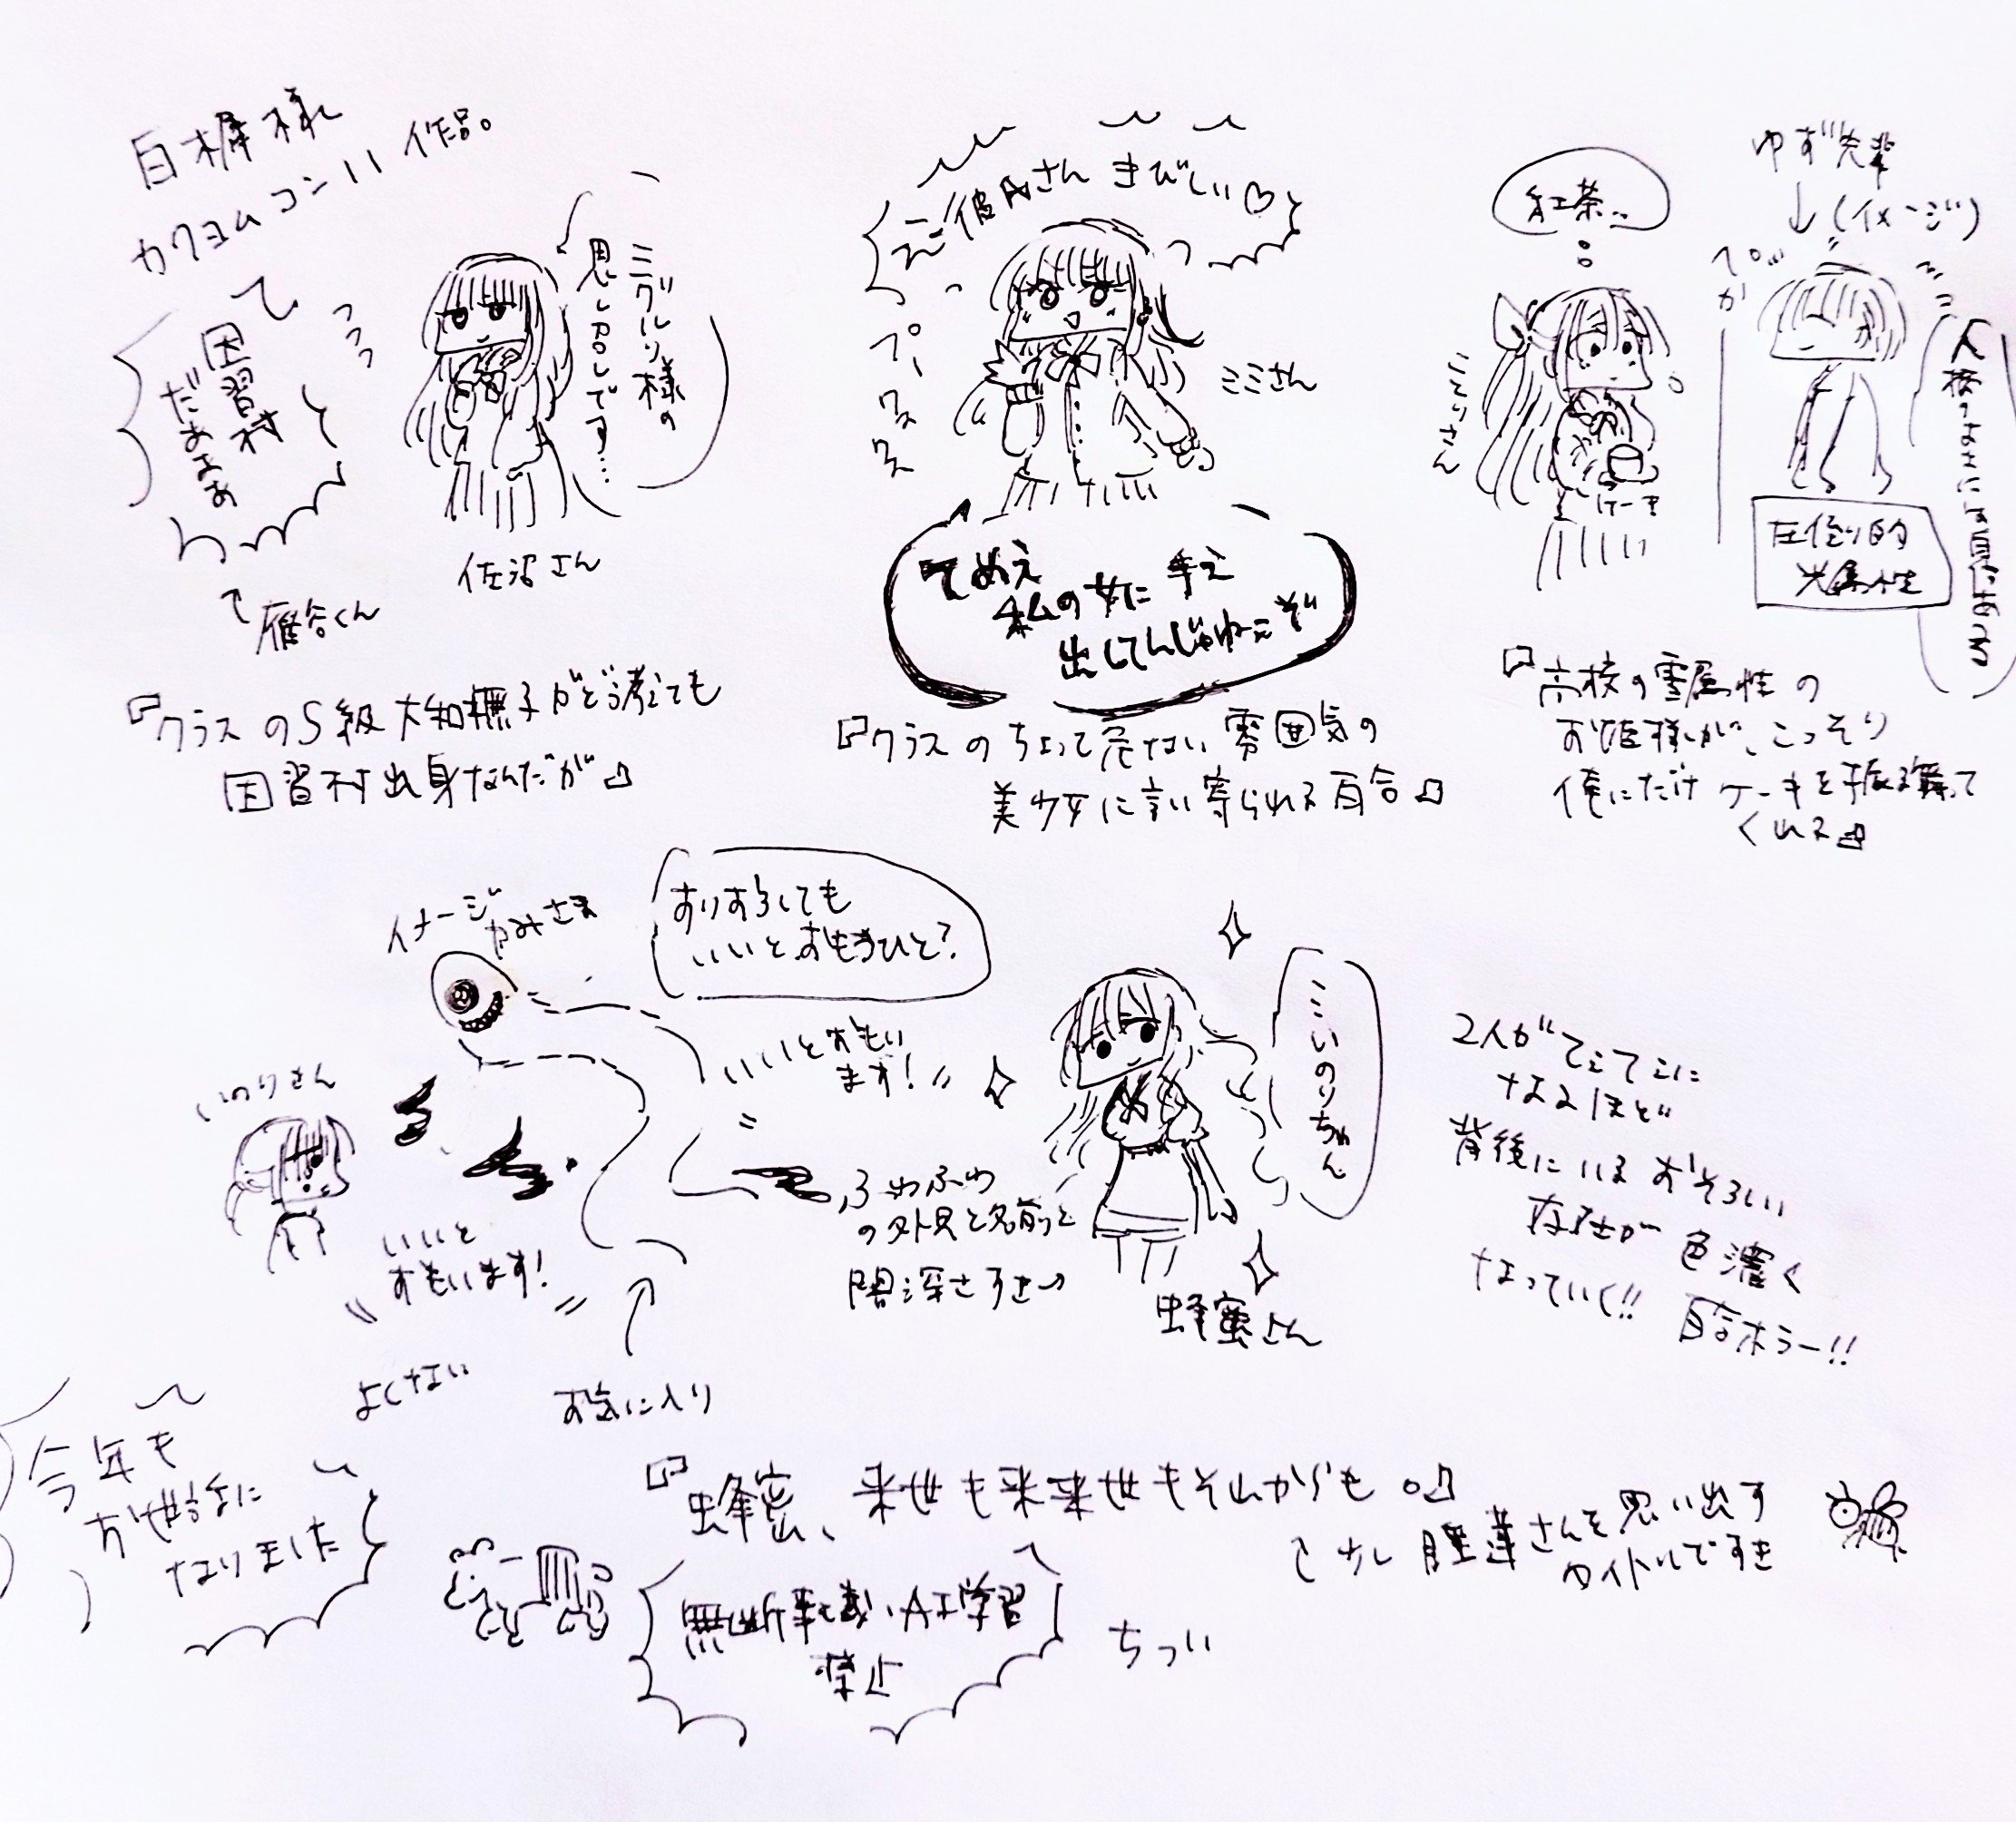 白樨様
カクヨムコン11 作品。
因習村
だぁぁぁぁ
雁谷くん
ミグルリ様の
思し召しです…
佐沼さん
『クラスのS級大和撫子がどう考えても
因習村出身なんだが』
彼氏さん きびしい♡
ミミさん
てめえ
私の女に 手え
出してんじゃねーぞ
『クラスのちょっと危ない雰囲気の
美少女に言い寄られる百合』
紅茶…
けーき
ゆず先輩
↓(イメージ)
圧倒的
光属性
『高校の雪属性の
お姫様が、こっそり
俺にだけ ケーキを振る舞って
くれる』
イメージ
かみさま
すりすりしても
いいとおもうひと?
いいとおもい
ます!
いのりさん
いいと
おもいます!
よくない
お気に入り
ふわふわ
の外見と名前と
闇深さすき→
いのりちゃん
蜂蜜さん
2人がてぇてぇに
なるほど
背後にいるおそろしい
存在が 色濃く
なっていく!! 百合ホラー!!
『蜂蜜、来世も来来世もそれからも。』
少し 睡蓮さんを思い出す
タイトルですき
今年も
お世話に
なりました
無断転載・AI学習
禁止
ちつい